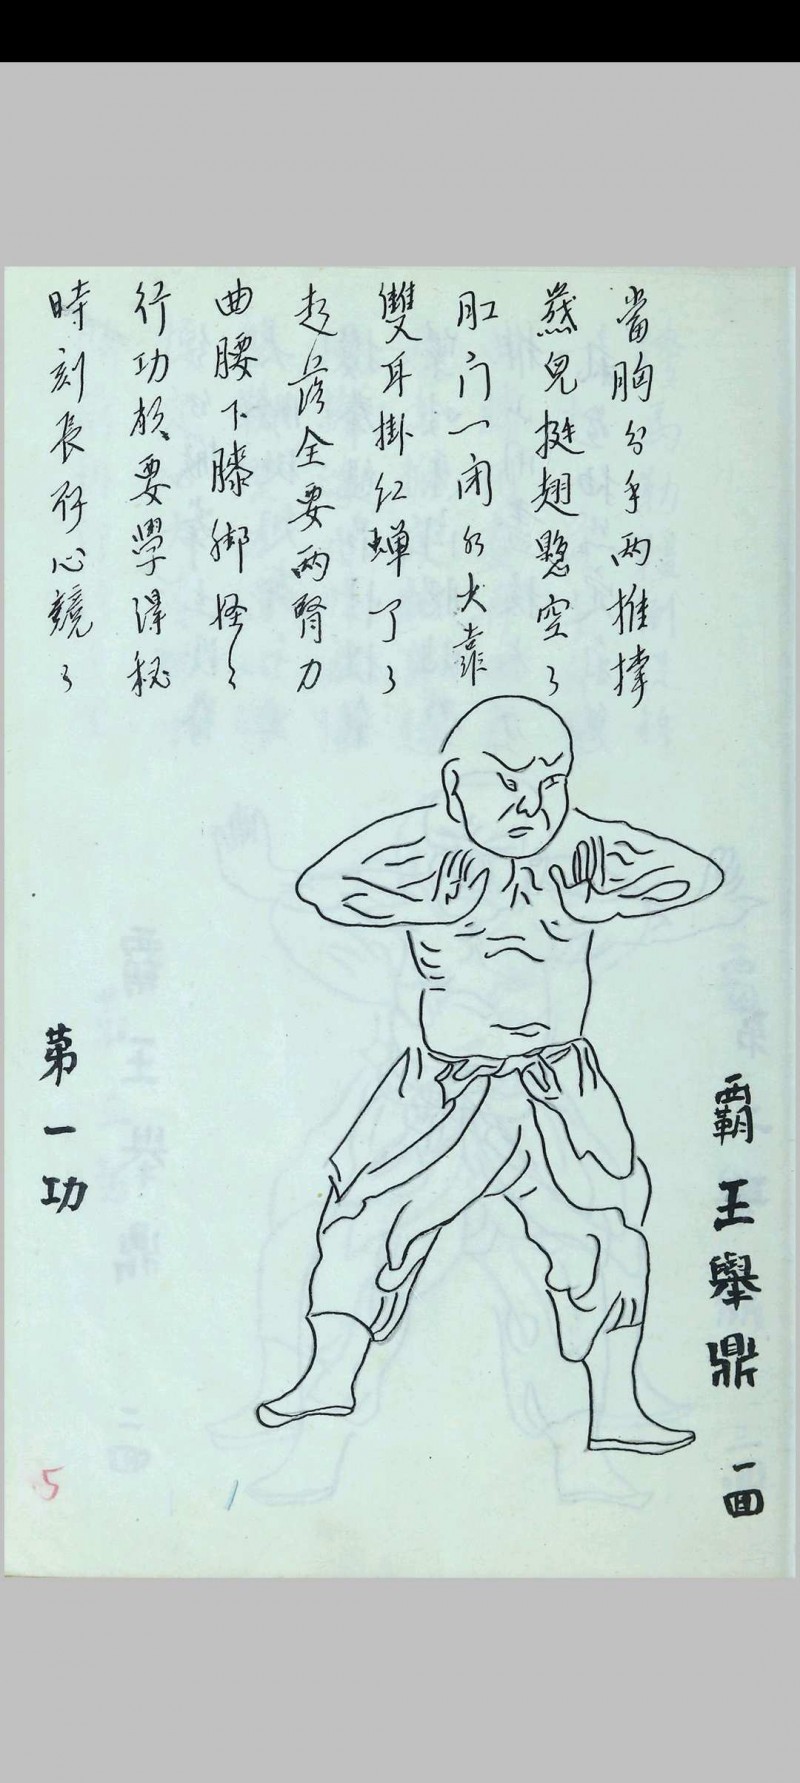 霸王舉鼎 一面
當胸分手兩推捧
燕兒挺翅懸空了
肛门一闭如火靠
雙耳掛红蟬了了
起落全要兩腎力
曲腰下膝腳怪〻
行功於要學得秘
時刻長存心競了
第一功
5
1